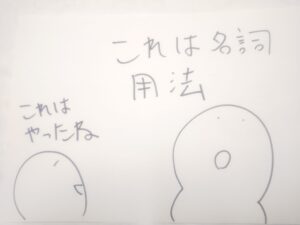 これは名詞
用法
これは
やったね